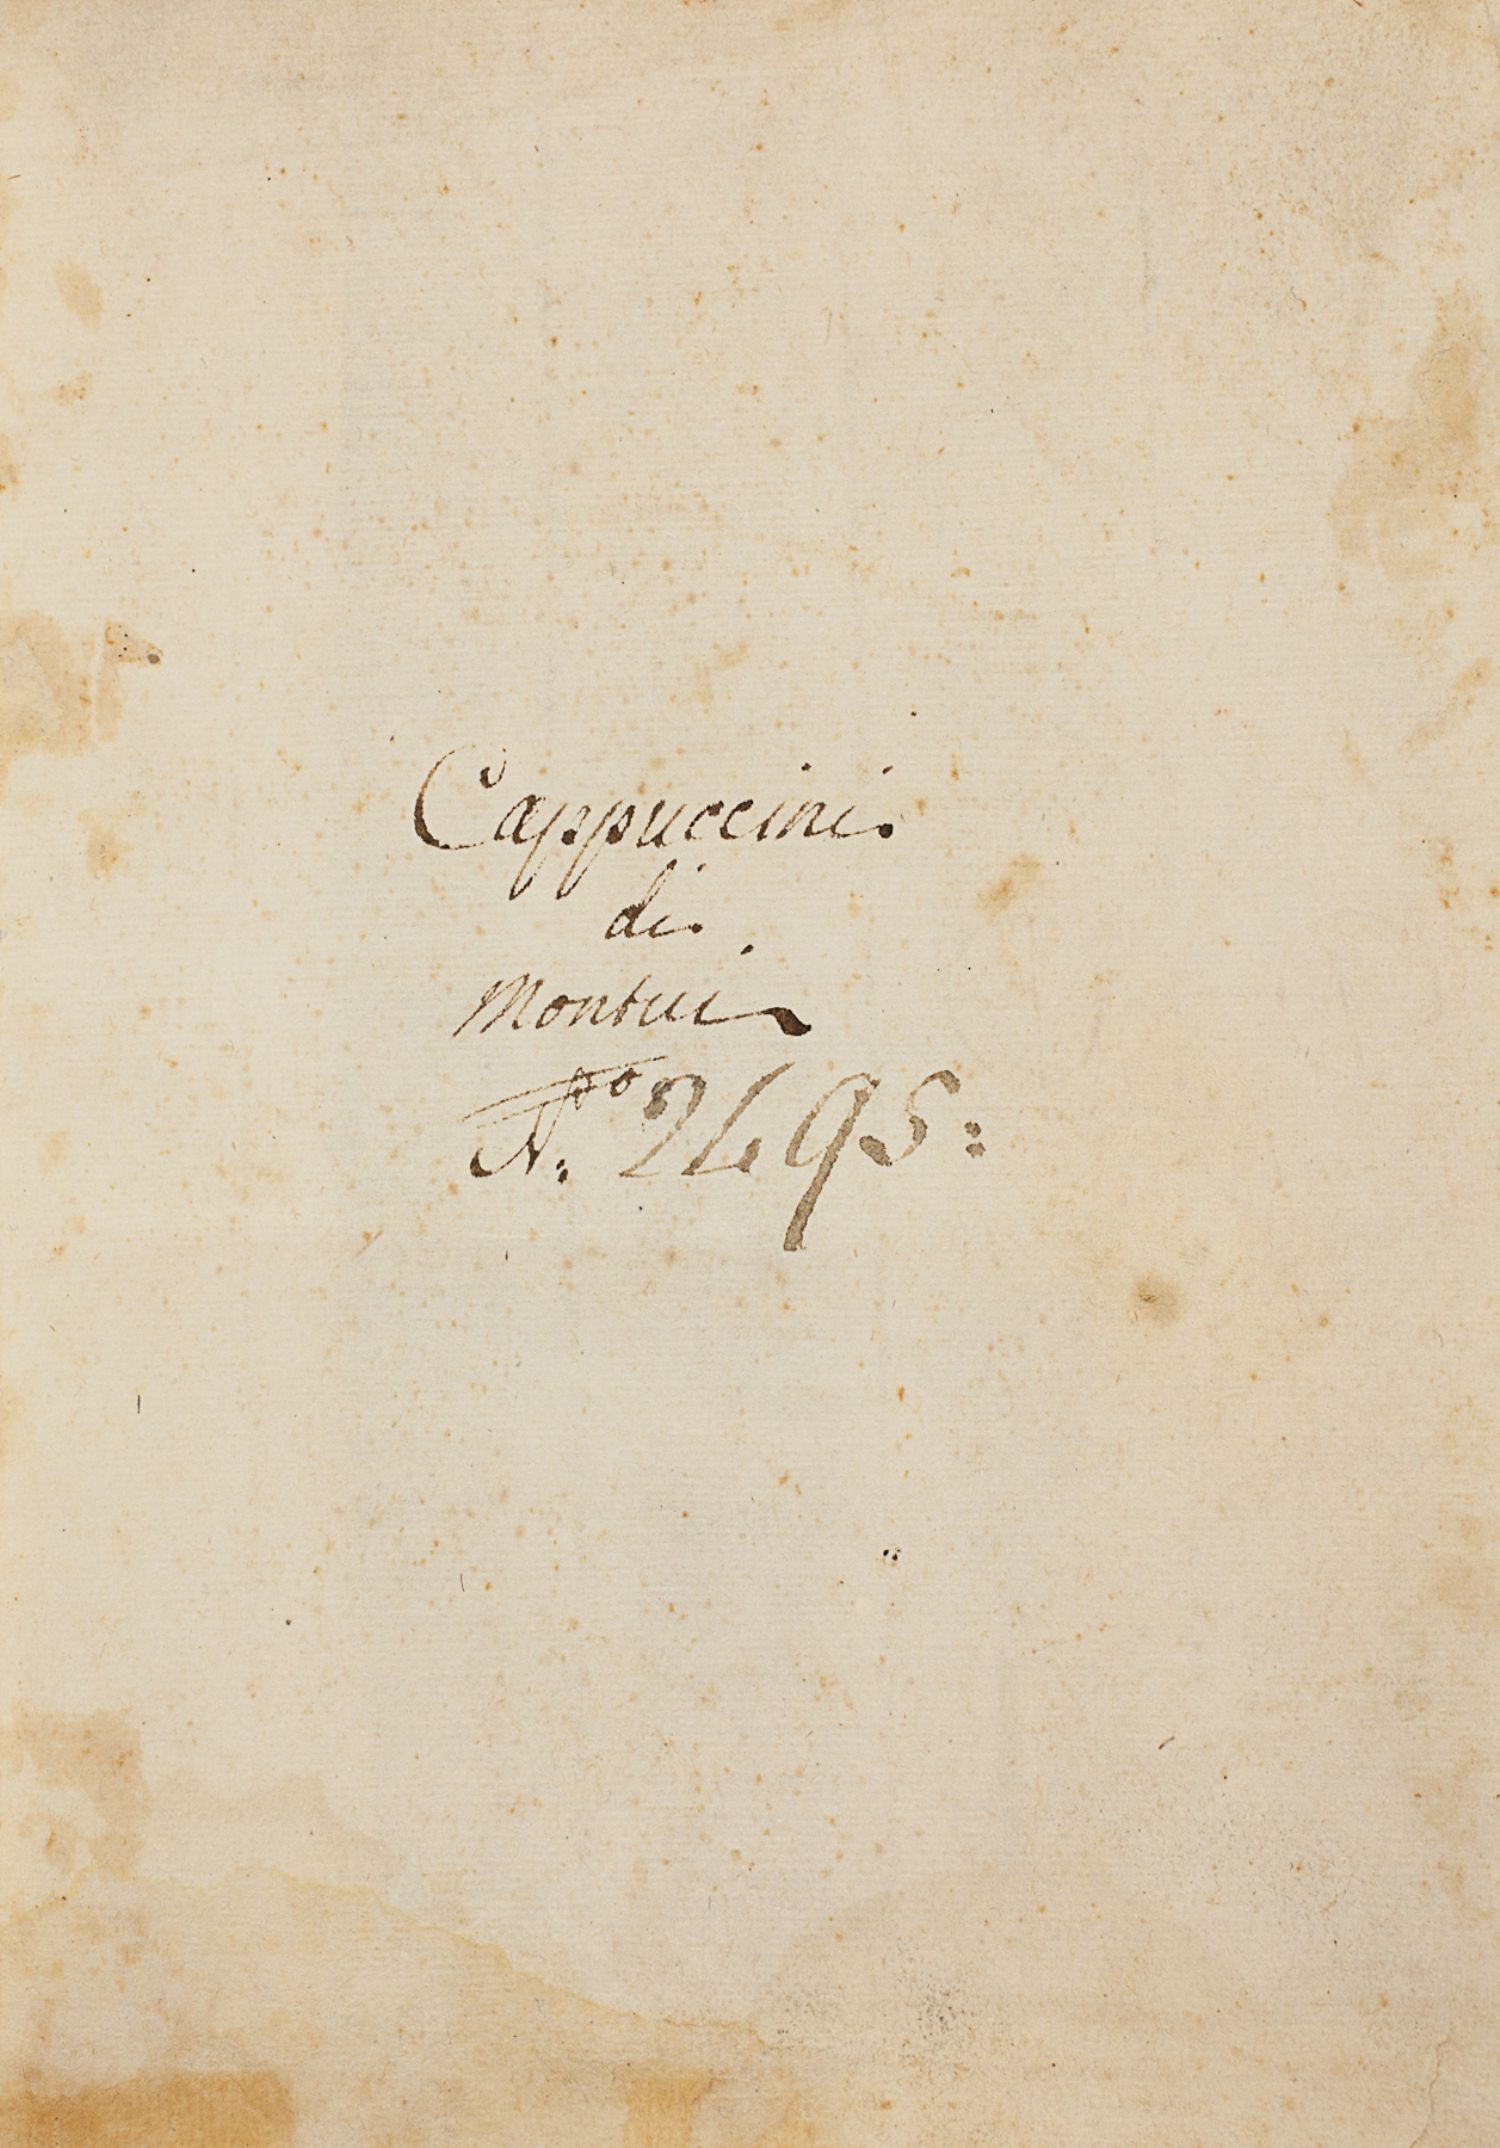 Cappuccini.
di.
Montui
N:ro 2495: